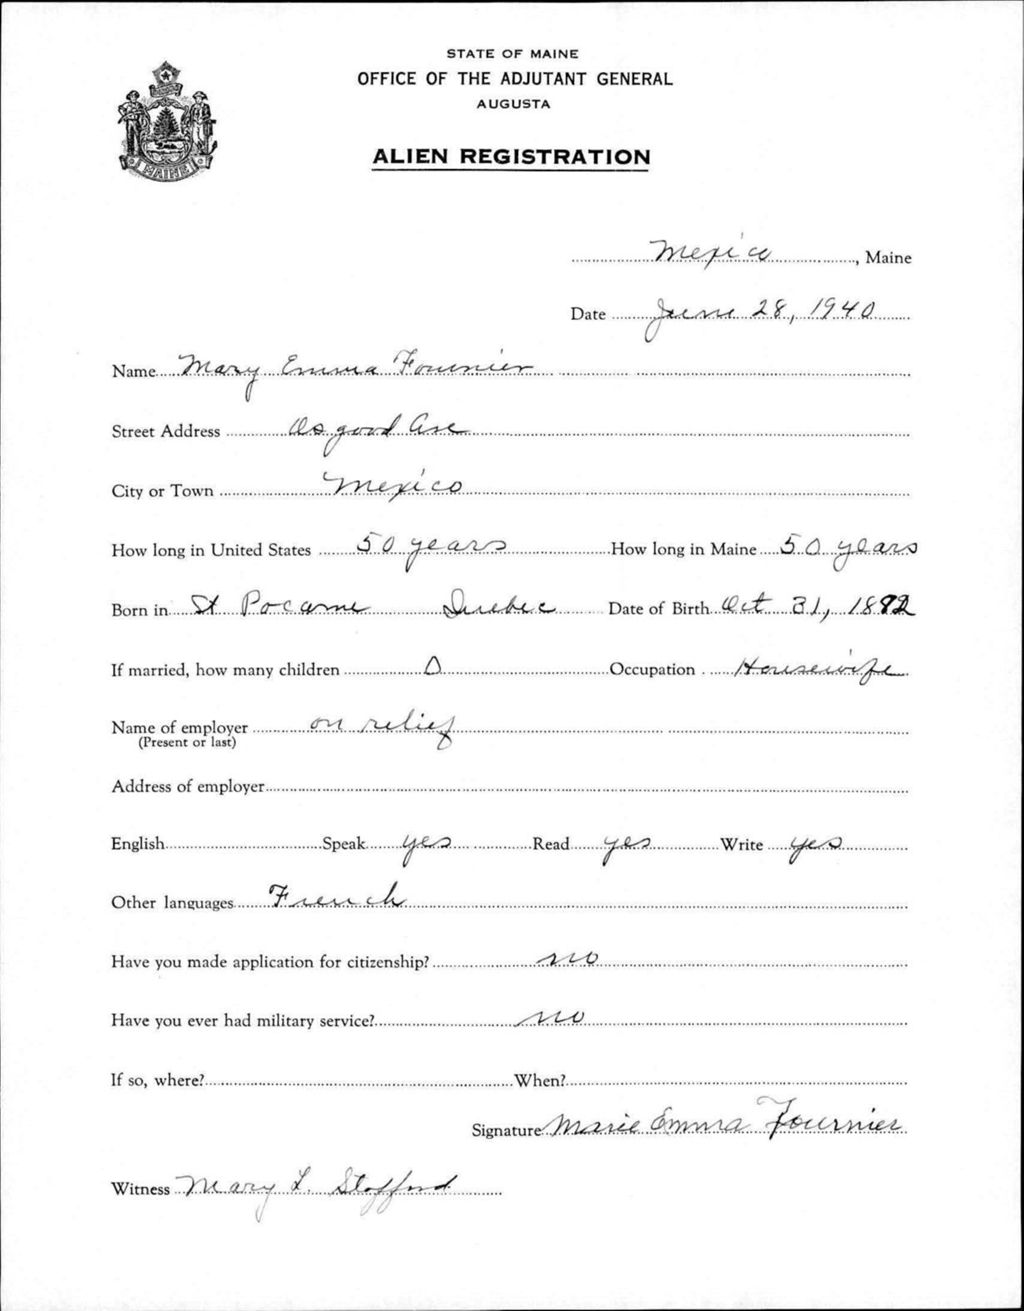 STATE OF MAINE
OFFICE OF THE ADJUTANT GENERAL
AUGUSTA
ALIEN REGISTRATION
MAINE
Mexico, Maine
Date June 28, 1940
Name Mary Emma Fournier
Street Address Osgood Ave
City or Town Mexico
How long in United States 50 years How long in Maine 50 years
Born in St Pocome Quebec Date of Birth Oct 31, 18
If married, how many children 0 Occupation Housewife
Name of employer on relief
(Present or last)
Address of employer
English Speak yes Read yes Write yes
Other languages French
Have you made application for citizenship? no
Have you ever had military service? no
If so, where? When?
Signature Marie Emma Fournier
Witness Mary L. Stafford